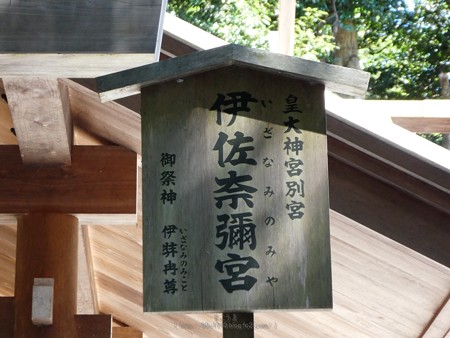 皇大神宮別宮
伊佐奈彌宮
いざなみのみや
御祭神 伊弉冉尊
いざなみのみこと